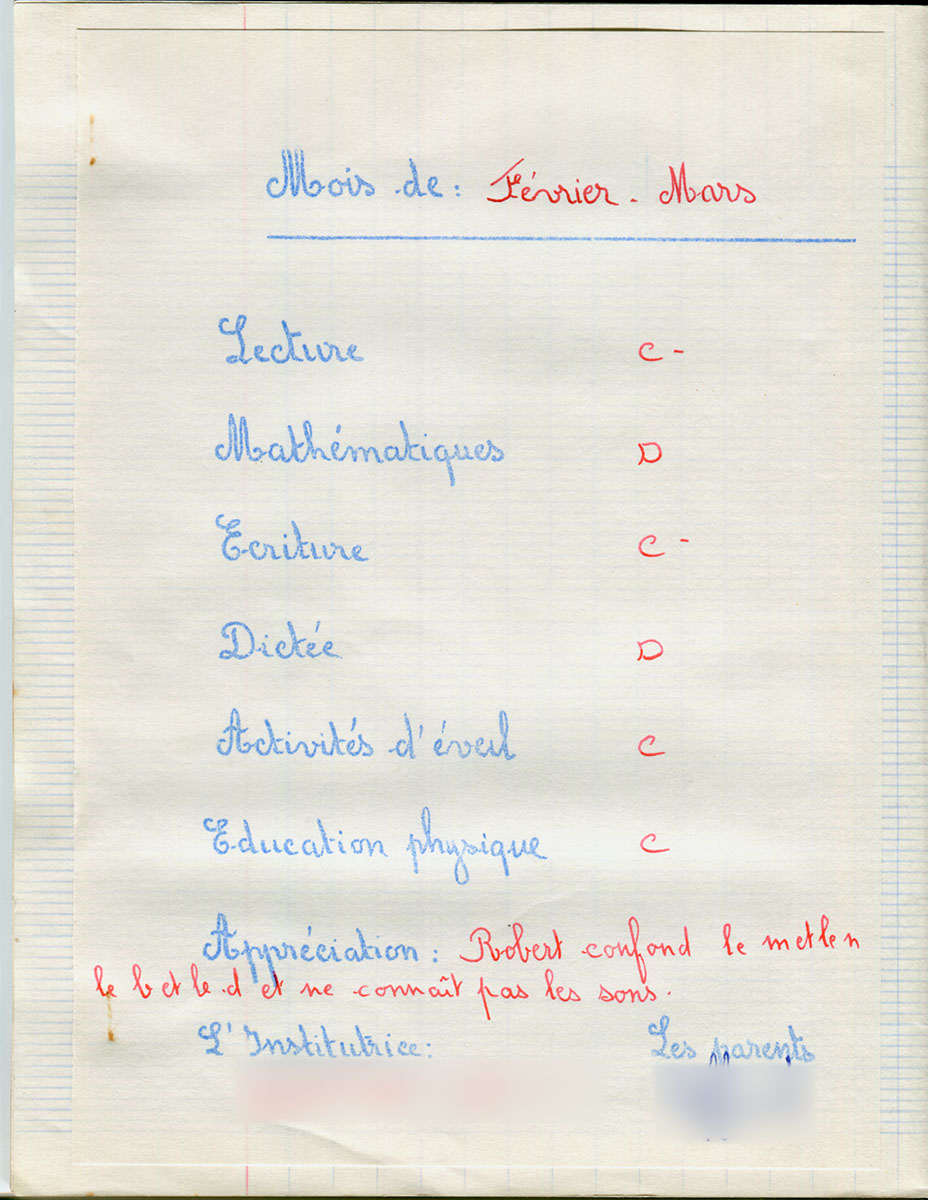 Mois de : Février - Mars
Lecture C -
Mathématiques D
Ecriture C -
Dictée D
Activités d'éveil C
Education physique C
Appréciation : Robert confond le m et le n
le b et le d et ne connaît pas les sons.
L'Institutrice : Les parents